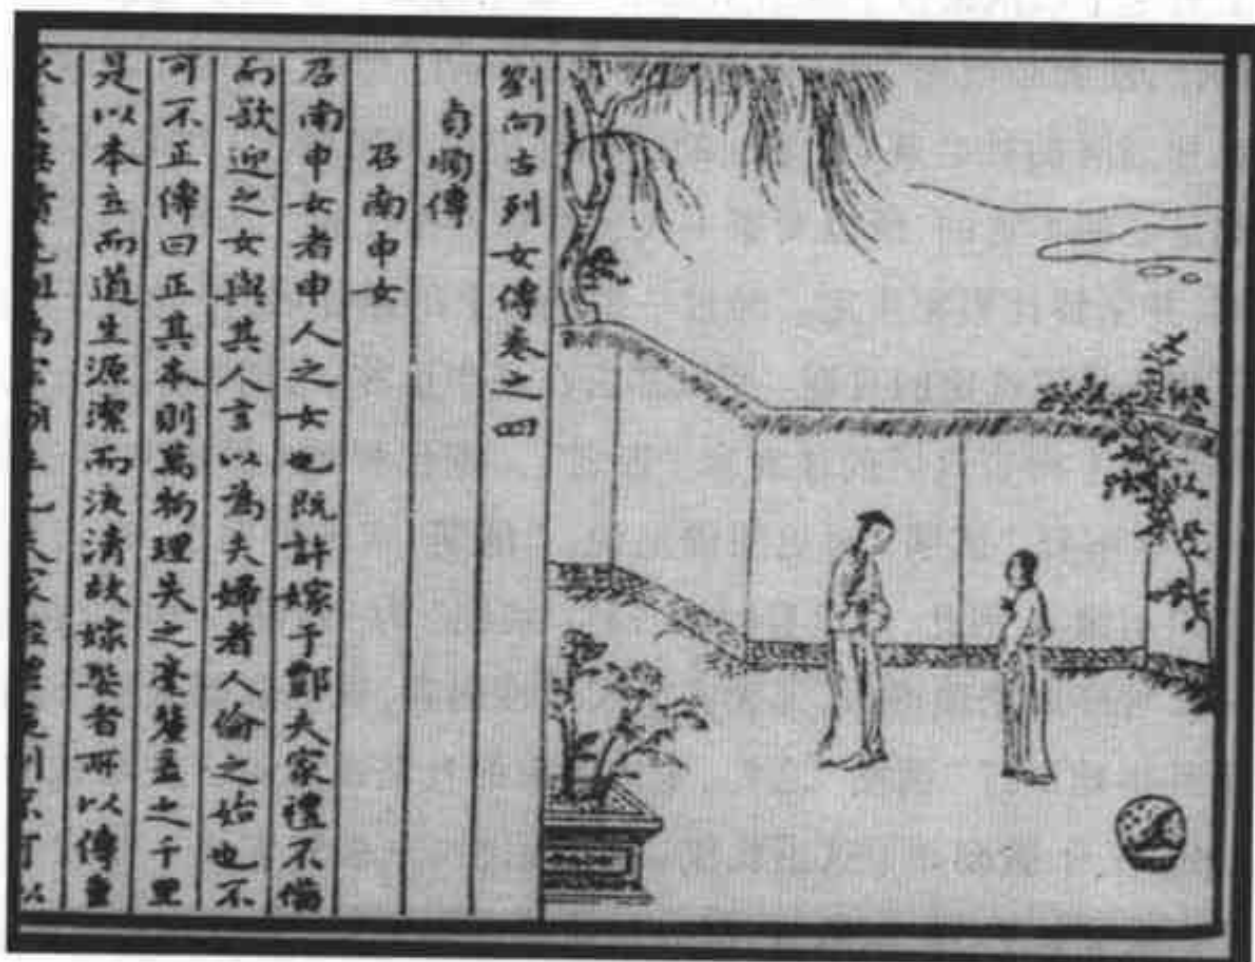 劉向古列女傳卷之四
貞順傳
召南申女
召南申女者申人之女也既許嫁于酆夫家禮不備
而欲迎之女與其人言以為夫婦者人倫之始也不
可不正傳曰正其本則萬物理失之毫釐差之千里
是以本立而道生源潔而流清故嫁娶者所以傳重
為宗廟主也夫家輕禮違制不可以